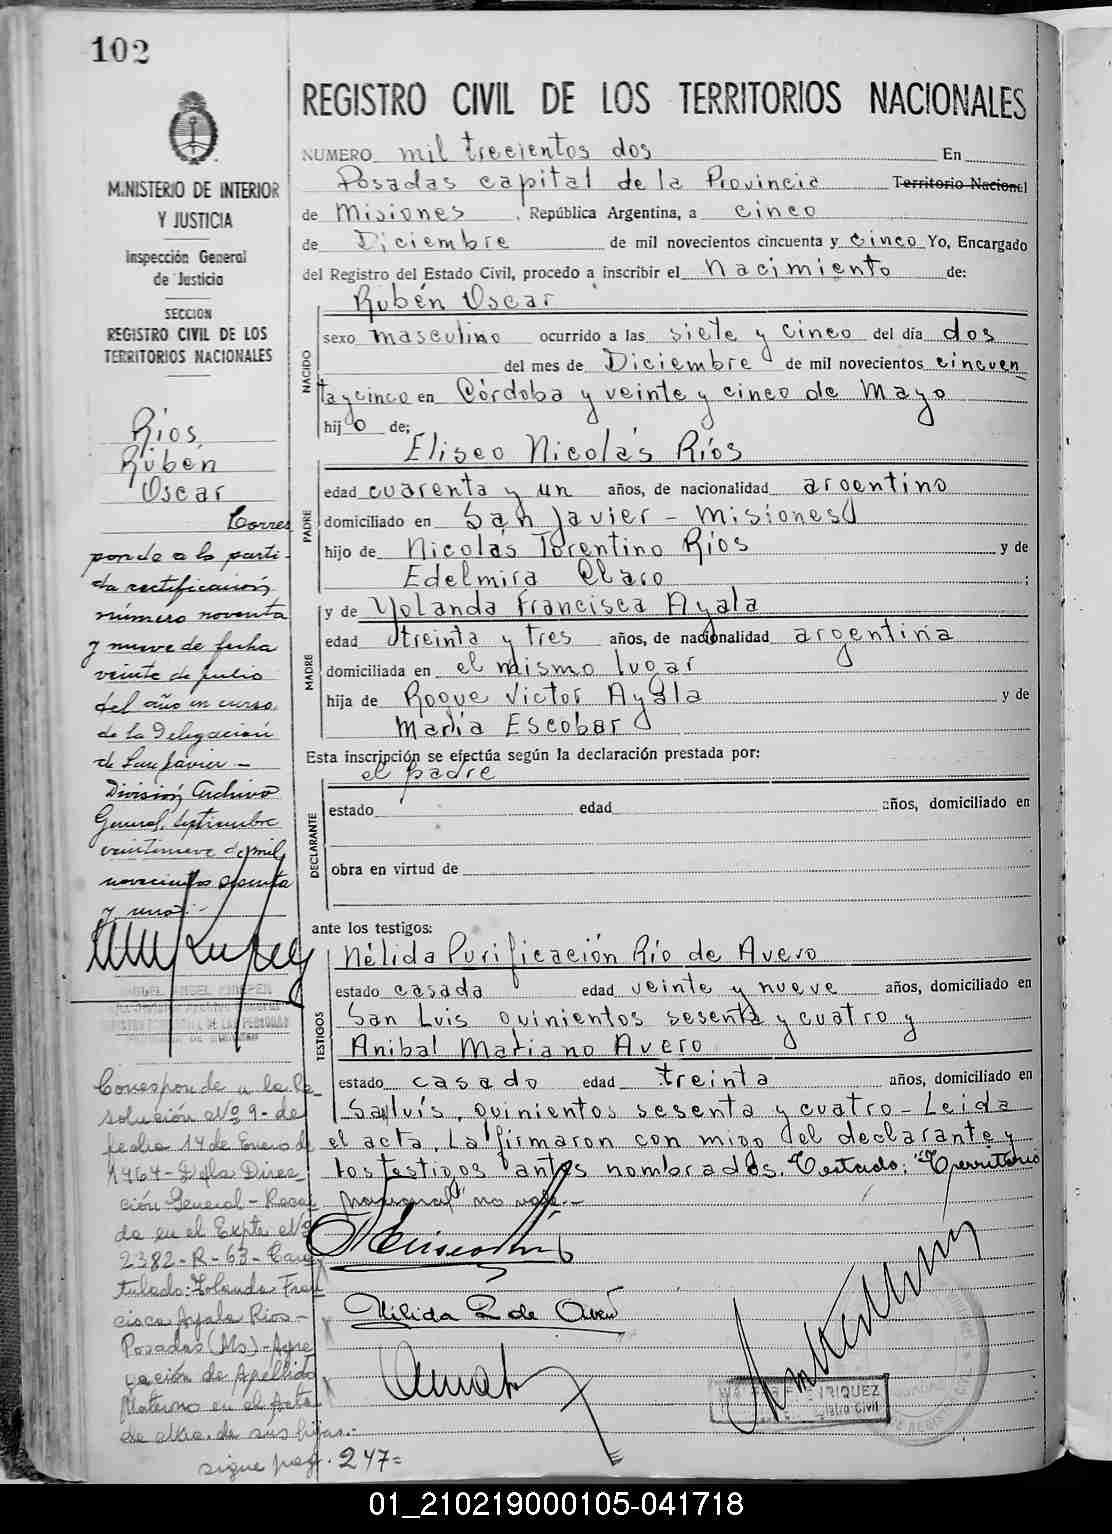 102
MINISTERIO DE INTERIOR
Y JUSTICIA
Inspección General
de Justicia
SECCION
REGISTRO CIVIL DE LOS
TERRITORIOS NACIONALES
Ríos,
Rubén
Oscar
Corres
ponde a la parti-
da rectificación
número noventa
y nueve de fecha
veinte de julio
del año en curso,
de la Delegación
de San Javier -
División Archivo
General, septiembre
veintinueve de mil
novecientos sesenta
y uno.-
Corresponde a la Re-
solución Nº 9- de
fecha 14 de Enero de
1964- D/la Direc-
ción General- Recaí
da en el Expte Nº
2382-R-63- Cara
tulado: Yolanda Fran
cisca Ayala Rios-
Posadas (Ms)-
de Apellido
Materno en el Acta
de sus hijos.-
sigue pag. 247=
REGISTRO CIVIL DE LOS TERRITORIOS NACIONALES
NUMERO mil trecientos dos En
Posadas capital de la Provincia Territorio Nacional
de Misiones, República Argentina, a cinco
de Diciembre de mil novecientos cincuenta y cinco Yo, Encargado
del Registro del Estado Civil, procedo a inscribir el Nacimiento de:
Rubén Oscar
NACIDO
sexo masculino ocurrido a las siete y cinco del día dos
del mes de Diciembre de mil novecientos cincuen
ta y cinco en Córdoba y veinte y cinco de Mayo
hijo de:
Eliseo Nicolás Ríos
PADRE
edad cuarenta y un años, de nacionalidad argentino
domiciliado en San Javier - Misiones
hijo de Nicolás Torentino Ríos y de
Edelmira Claro ;
y de Yolanda Francisca Ayala
MADRE
edad treinta y tres años, de nacionalidad argentina
domiciliada en el mismo lugar
hija de Roque Victor Ayala y de
María Escobar
Esta inscripción se efectúa según la declaración prestada por:
el padre
DECLARANTE
estado edad años, domiciliado en
obra en virtud de
ante los testigos:
TESTIGOS
Nélida Purificación Río de Avero
estado casada edad veinte y nueve años, domiciliado en
San Luis quinientos sesenta y cuatro y
Anibal Mariano Avero
estado casado edad treinta años, domiciliado en
San luís, quinientos sesenta y cuatro - Leida
el acta, la firmaron con migo del declarante y
los testigos antes nombrados. Testado: "Territorio
nacional" no vale.-
Nélida R de Avero
ENRIQUEZ
Registro Civil
01_210219000105-041718